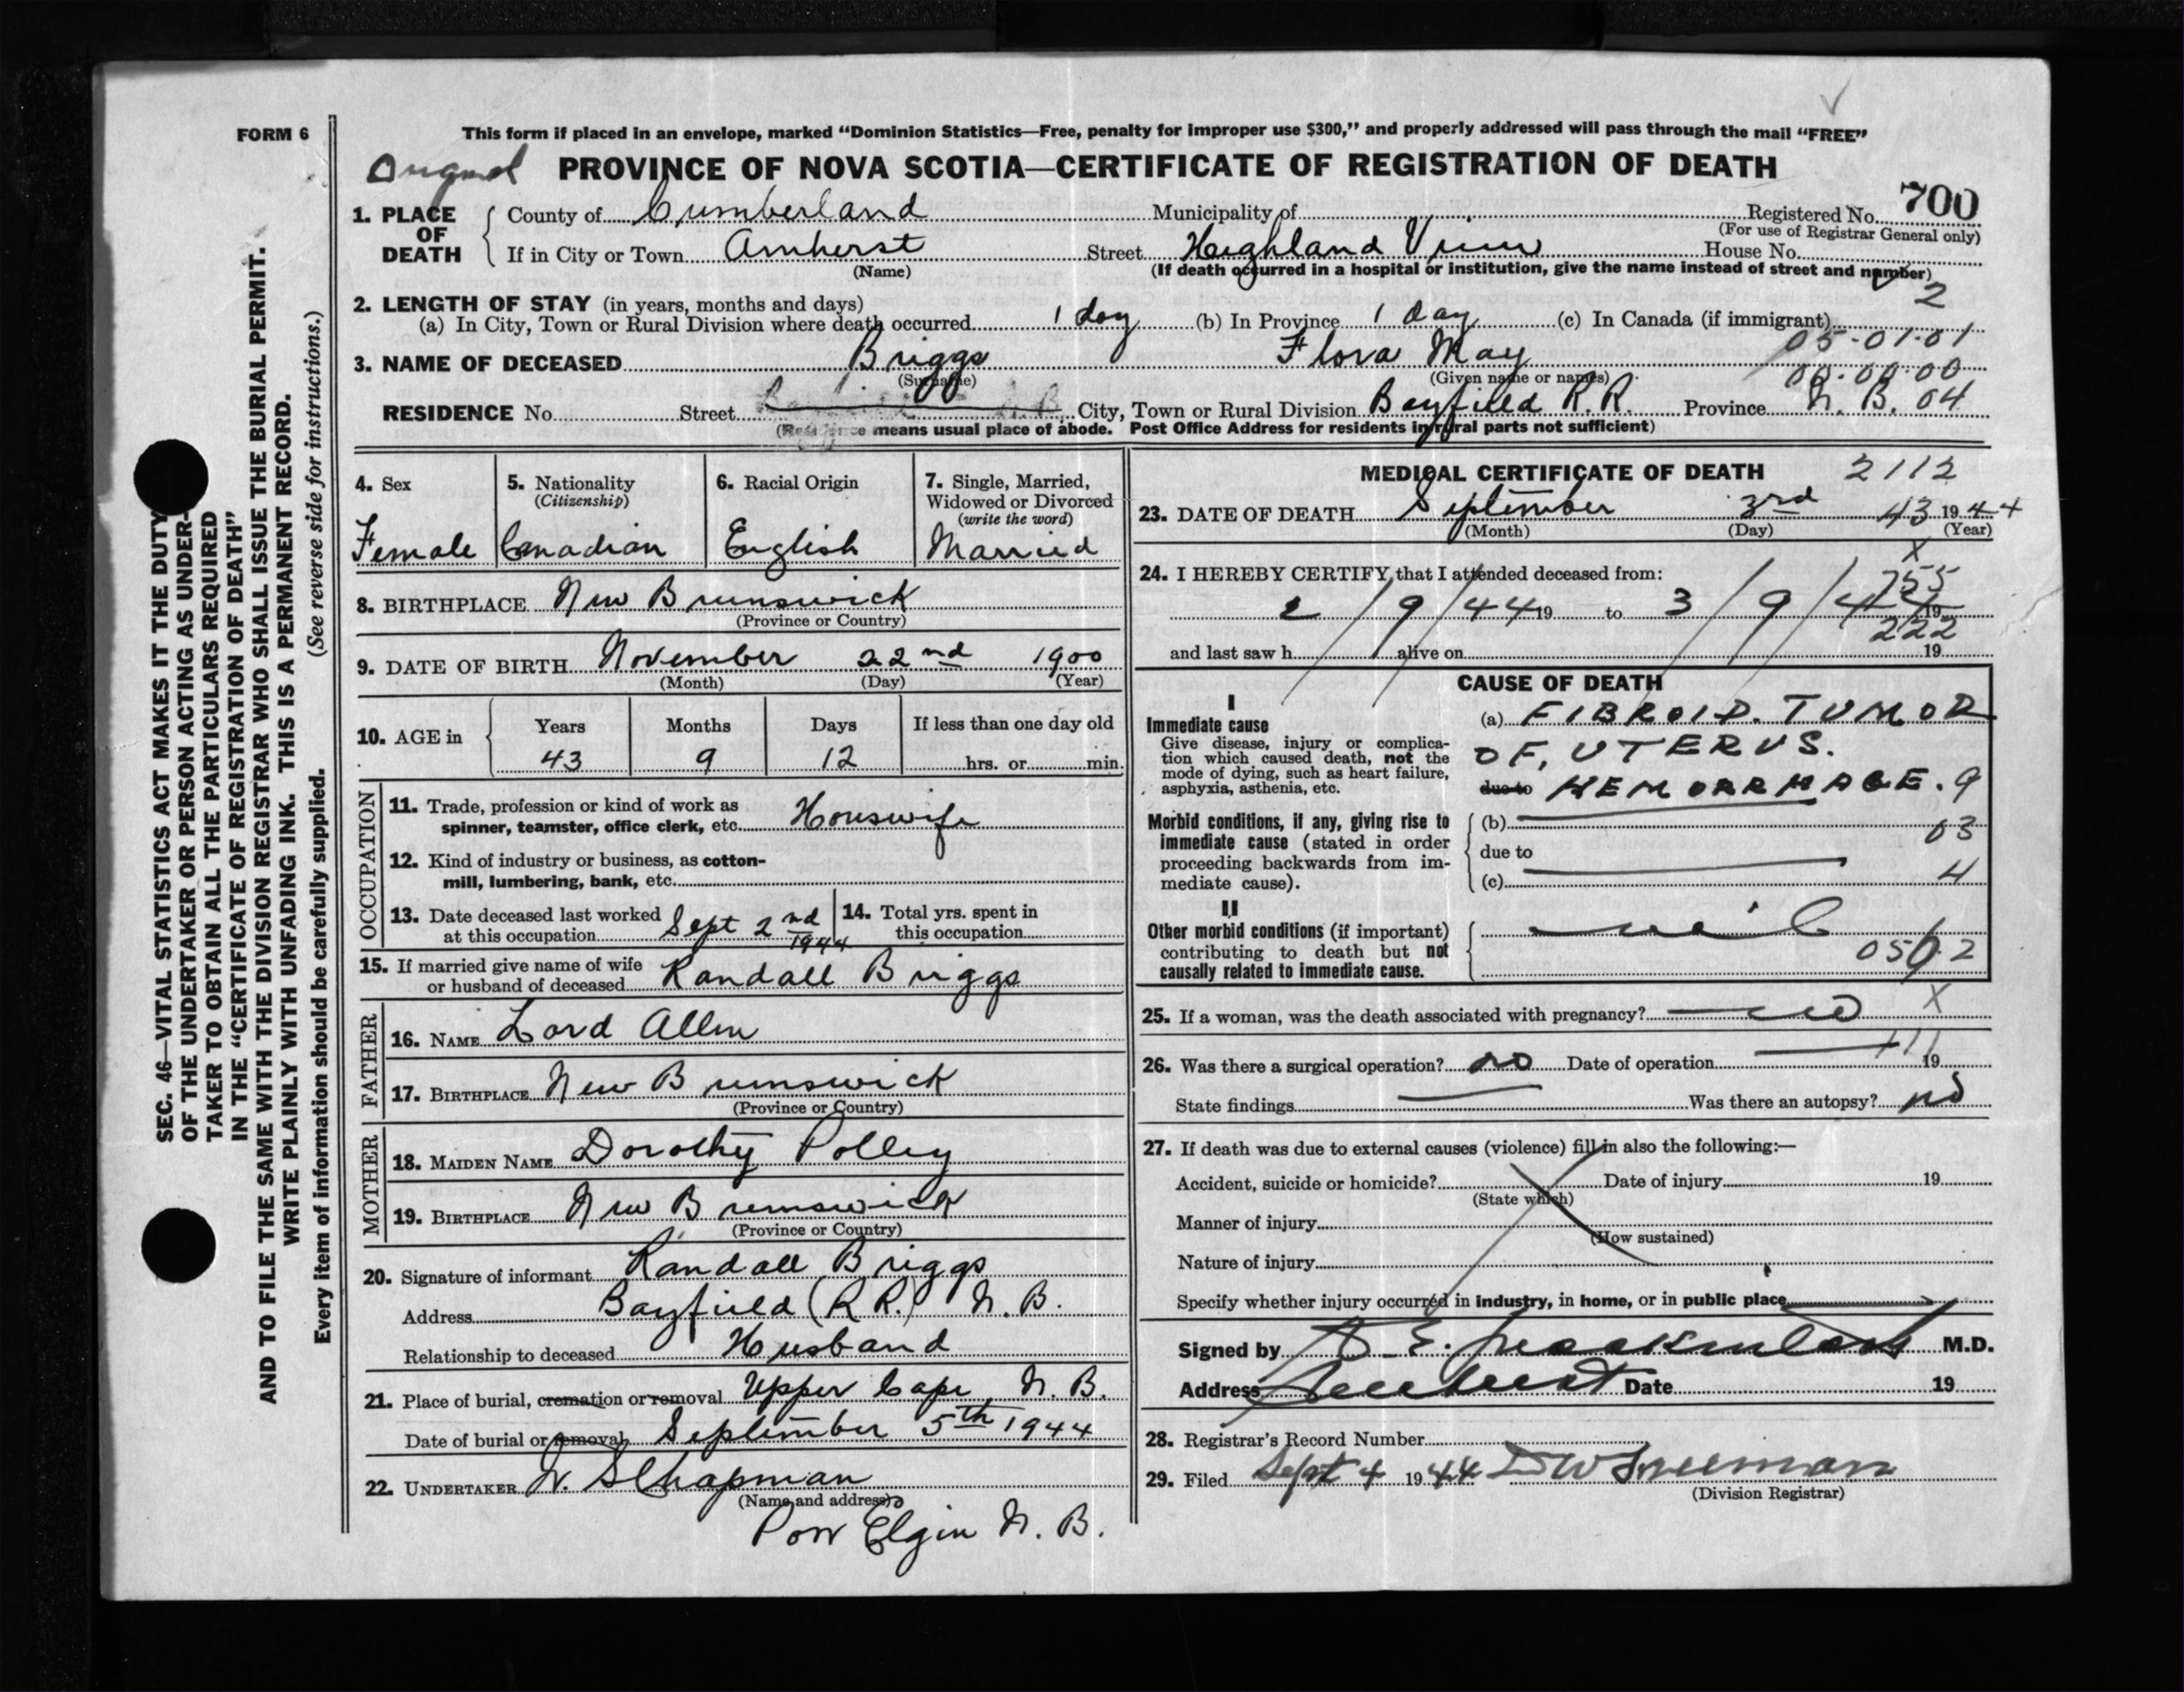 FORM 6
This form if placed in an envelope, marked "Dominion Statistics—Free, penalty for improper use $300," and properly addressed will pass through the mail "FREE"
Original PROVINCE OF NOVA SCOTIA—CERTIFICATE OF REGISTRATION OF DEATH
1. PLACE OF DEATH
County of Cumberland Municipality of Registered No. 700
(For use of Registrar General only)
If in City or Town Amherst Street Highland View House No.
(Name) (If death occurred in a hospital or institution, give the name instead of street and number)
2
2. LENGTH OF STAY (in years, months and days)
(a) In City, Town or Rural Division where death occurred 1 day (b) In Province 1 day (c) In Canada (if immigrant)
05-01-01
3. NAME OF DECEASED Briggs Flora May
(Surname) (Given name or names) 00-00-00
RESIDENCE No. Street City, Town or Rural Division Bayfield R.R. Province N. B. 04
(Residence means usual place of abode. Post Office Address for residents in rural parts not sufficient)
4. Sex
Female
5. Nationality
(Citizenship)
Canadian
6. Racial Origin
English
7. Single, Married,
Widowed or Divorced
(write the word)
Married
8. BIRTHPLACE New Brunswick
(Province or Country)
9. DATE OF BIRTH November 22nd 1900
(Month) (Day) (Year)
10. AGE in Years Months Days If less than one day old
43 9 12 hrs. or min.
OCCUPATION
11. Trade, profession or kind of work as
spinner, teamster, office clerk, etc. Houswife
12. Kind of industry or business, as cotton-
mill, lumbering, bank, etc.
13. Date deceased last worked
at this occupation Sept 2nd 1944
14. Total yrs. spent in
this occupation
15. If married give name of wife
or husband of deceased Randall Briggs
FATHER
16. NAME Lord Allen
17. BIRTHPLACE New Brunswick
(Province or Country)
MOTHER
18. MAIDEN NAME Dorothy Polley
19. BIRTHPLACE New Brunswick
(Province or Country)
20. Signature of informant Randall Briggs
Address Bayfield (R.R.) N. B.
Relationship to deceased Husband
21. Place of burial, cremation or removal Upper Cape, N. B.
Date of burial or removal September 5th 1944
22. UNDERTAKER W. S Chapman
(Name and address)
Port Elgin N. B.
MEDICAL CERTIFICATE OF DEATH 2112
23. DATE OF DEATH September 3rd 43 1944
(Month) (Day) (Year)
X
24. I HEREBY CERTIFY that I attended deceased from: 755
2/9/44 19 to 3/9/44 19
222
and last saw h alive on 19
CAUSE OF DEATH
I
Immediate cause
Give disease, injury or complica-
tion which caused death, not the
mode of dying, such as heart failure,
asphyxia, asthenia, etc.
(a) FIBROID. TUMOR
OF, UTERUS.
due to HEMORRHAGE. 9
Morbid conditions, if any, giving rise to
immediate cause (stated in order
proceeding backwards from im-
mediate cause).
(b) 03
due to
(c) 4
II
Other morbid conditions (if important)
contributing to death but not
causally related to immediate cause.
nil
25. If a woman, was the death associated with pregnancy? no X
26. Was there a surgical operation? no Date of operation 19
State findings Was there an autopsy? no
27. If death was due to external causes (violence) fill in also the following:—
Accident, suicide or homicide? Date of injury 19
(State which)
Manner of injury
(How sustained)
Nature of injury
Specify whether injury occurred in industry, in home, or in public place
Signed by M.D.
Address Amherst Date 19
28. Registrar's Record Number
29. Filed Sept 4 1944 DW Freeman
(Division Registrar)
SEC. 46—VITAL STATISTICS ACT MAKES IT THE DUTY
OF THE UNDERTAKER OR PERSON ACTING AS UNDER-
TAKER TO OBTAIN ALL THE PARTICULARS REQUIRED
IN THE "CERTIFICATE OF REGISTRATION OF DEATH"
AND TO FILE THE SAME WITH THE DIVISION REGISTRAR WHO SHALL ISSUE THE BURIAL PERMIT.
WRITE PLAINLY WITH UNFADING INK. THIS IS A PERMANENT RECORD.
Every item of information should be carefully supplied. (See reverse side for instructions.)